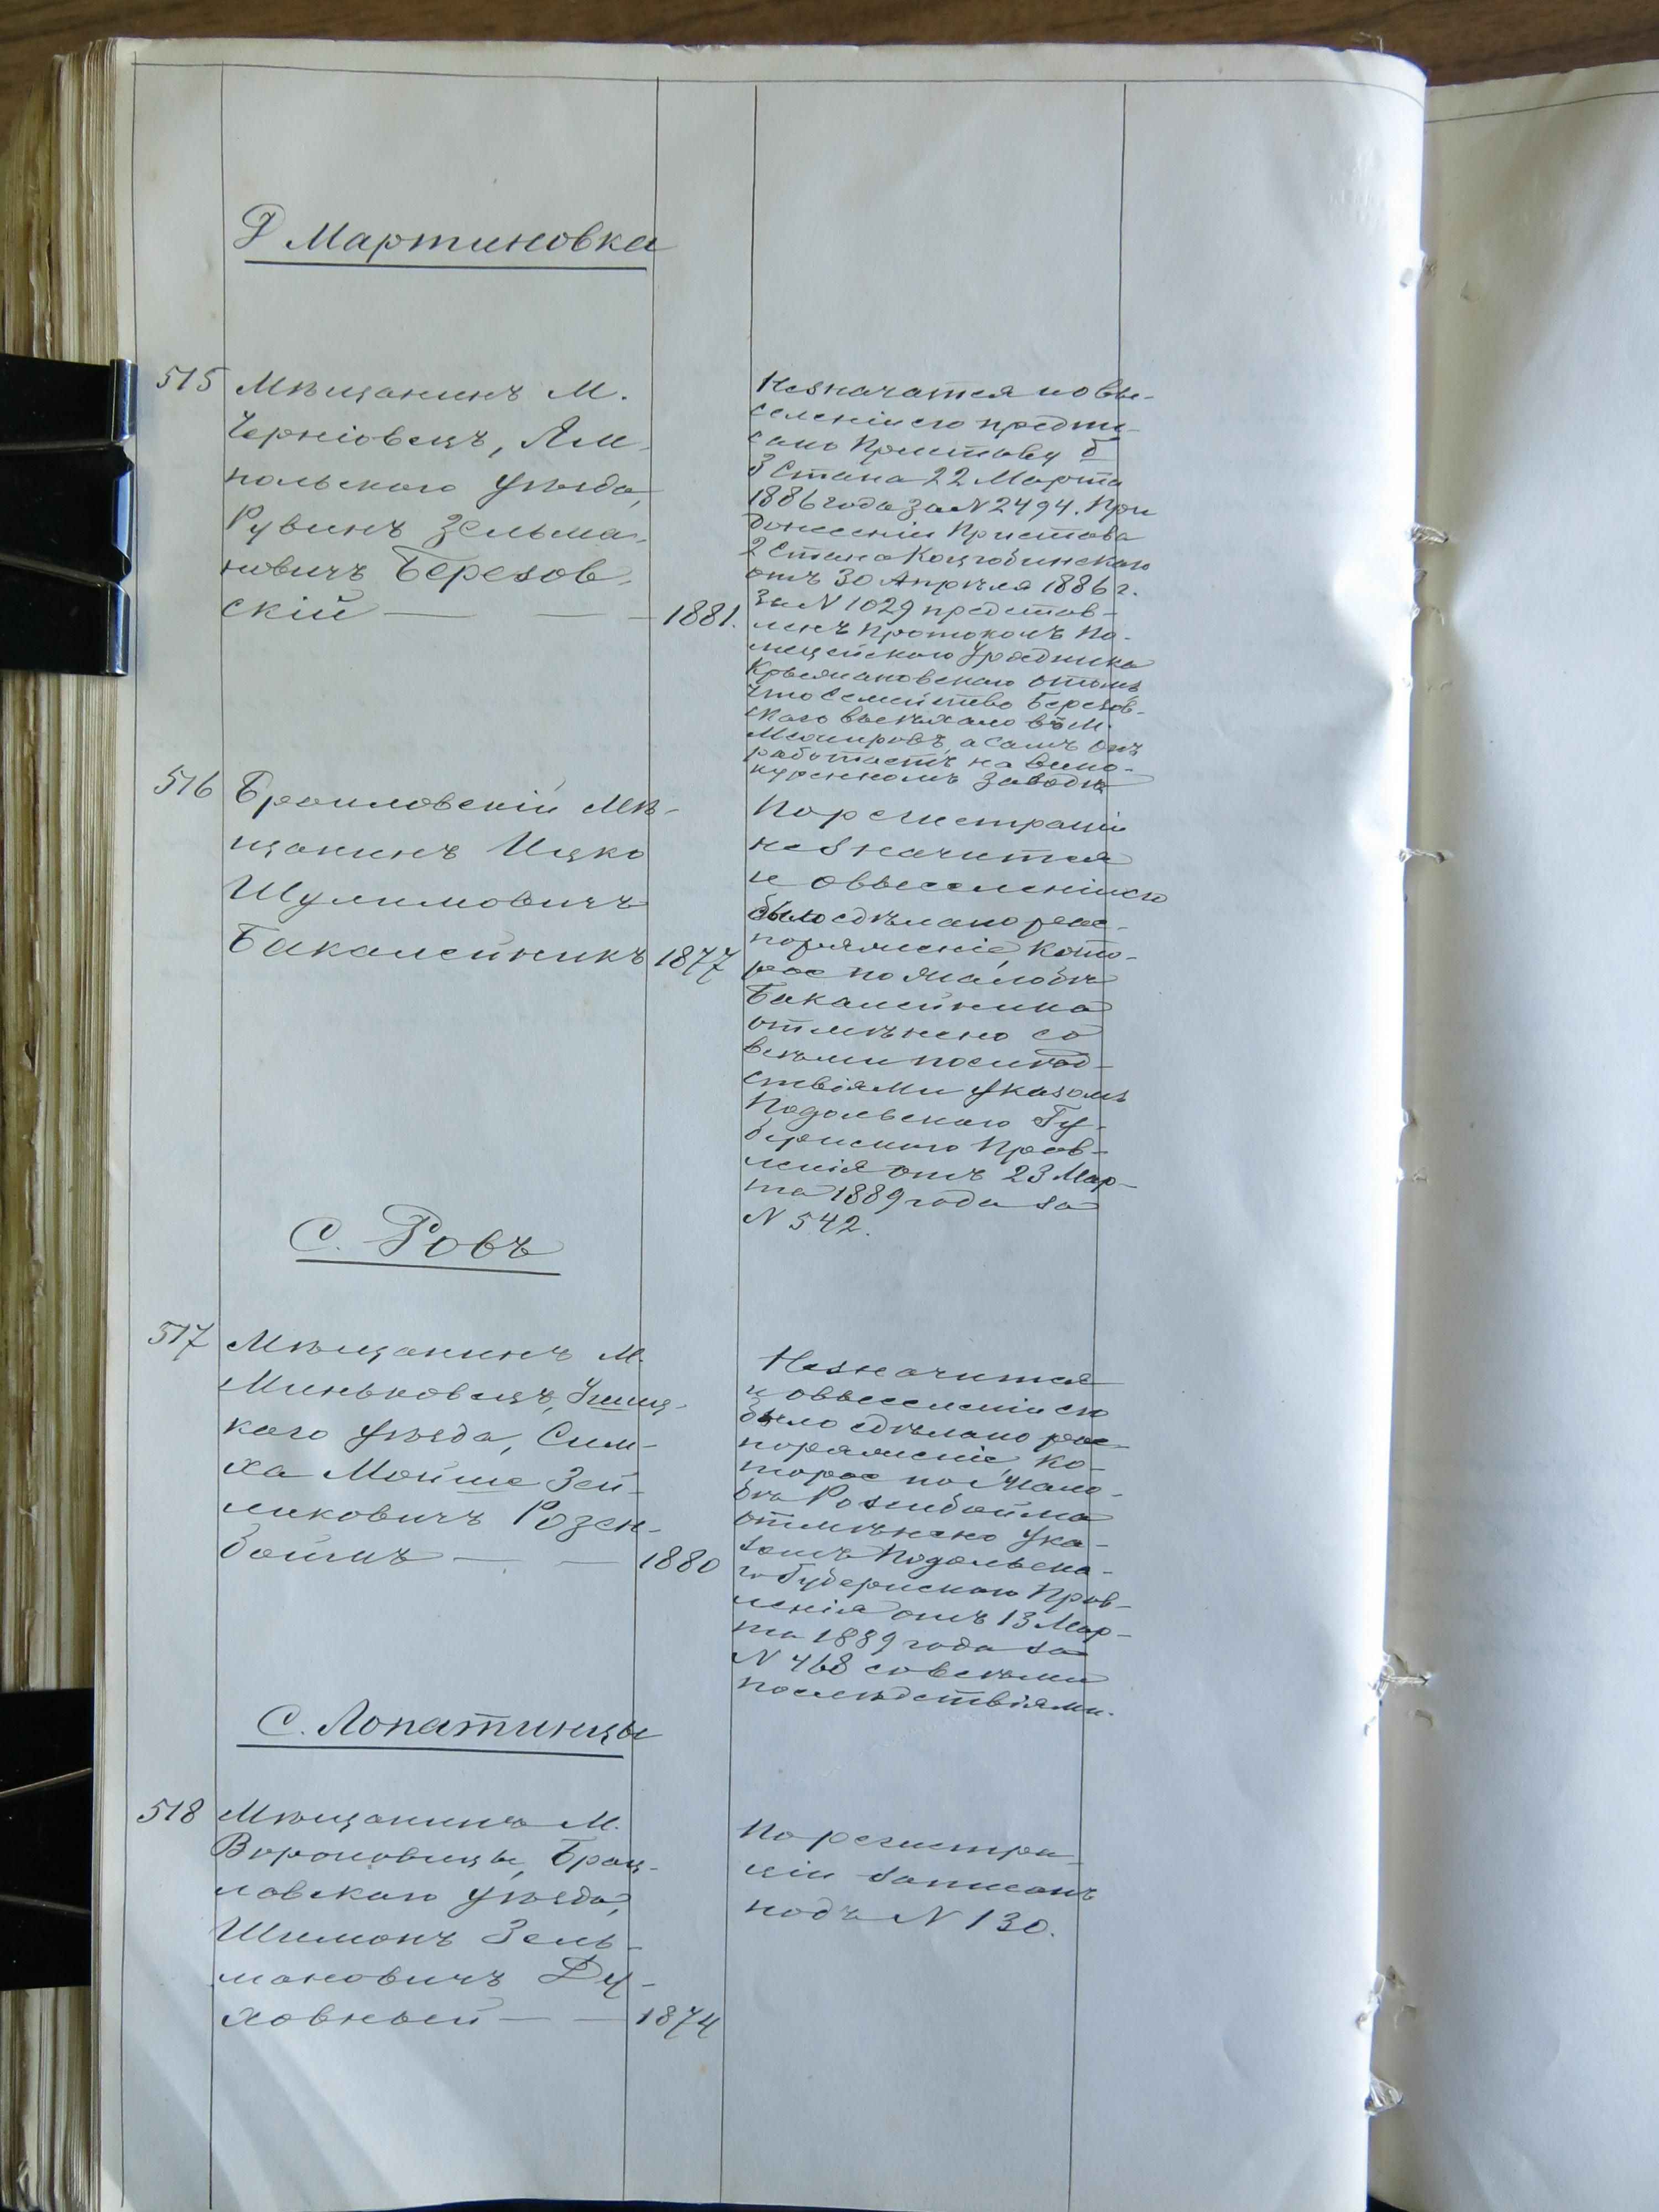 Д Мартиновка
515 Мѣщанинъ М.
Черніовецъ, Ям-
польскаго уѣзда,
Рувинъ Зельма-
новичъ Березов-
скій — — 1881.
Незначатся и о вы-
селеніи его предпи-
сано Приставу
3 Стана 22 Марта
1886 года за N 2494. При
донесеніи Пристава
2 Стана
отъ 30 Апрѣля 1886 г.
за N 1029 представ-
ленъ протоколъ По-
лицейскаго Урядника
о томъ
что семейство Березов-
скаго выѣхало въ М.
а самъ онъ
работаетъ на Вино-
куренномъ заводѣ
516 Браиловскій Мѣ-
щанинъ Ицко
Шулимовичъ
Бакалейникъ 1877
По регистраціи
незначится
и овыселеніи его
было сдѣлано рас-
поряженіе, кото-
рое по жалобѣ
Бакалейника
отмѣнено со
всѣми послѣд-
ствіями Указомъ
Подольскаго Гу-
бернскаго Прав-
ленія отъ 23 Мар-
та 1889 года за
N 542.
С. Ровъ
517 Мѣщанинъ М.
Миньковецъ, Ушиц-
каго уѣзда, Сим-
ха Мойше Зей-
ликовичъ Розен-
боймъ — — 1880
Незначится
и овыселеніи его
было сдѣлано рас-
поряженіе, ко-
торое по жало-
бѣ Розенбойма
отмѣнено Ука-
зомъ Подольска-
го Губернскаго Прав-
ленія отъ 13 Мар-
та 1889 года за
N 468 со всѣми
послѣдствіями.
С. Лопатинцы
518 Мѣщанинъ М.
Вороновицы, Брац-
лавскаго уѣзда,
Шимонъ Зель-
мановичъ Ду-
ховный — — 1874
По регистра-
ціи записанъ
подъ N 130.